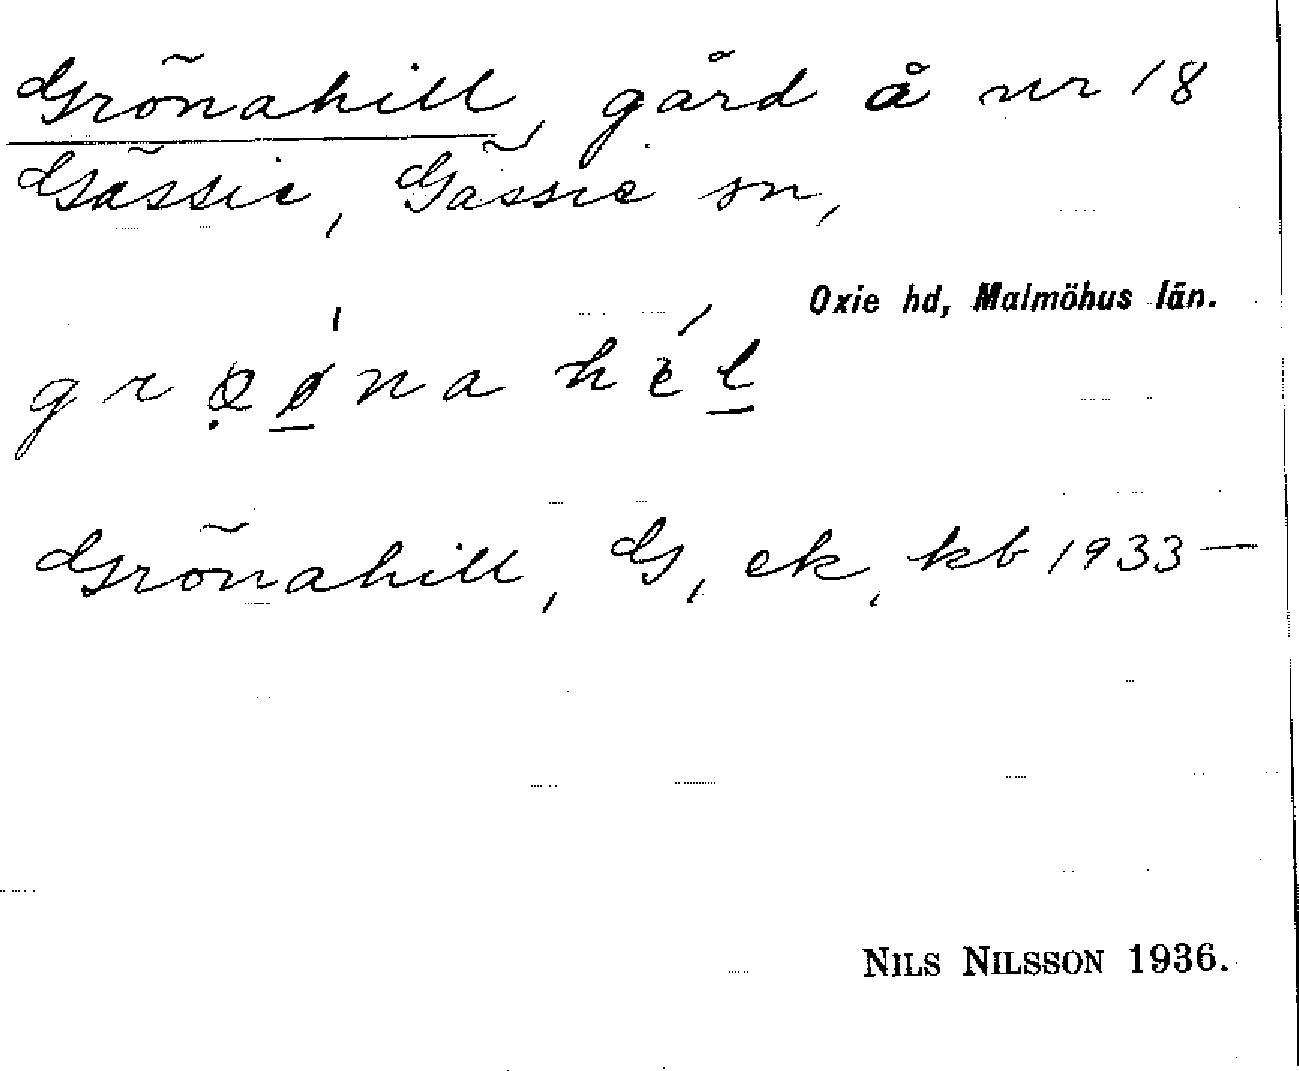 Grönahill, gård å nr 18
Gässie, Gässie sn,
Oxie hd, Malmöhus län.
Grönahill, G, ek, kb 1933—
NILS NILSSON 1936.